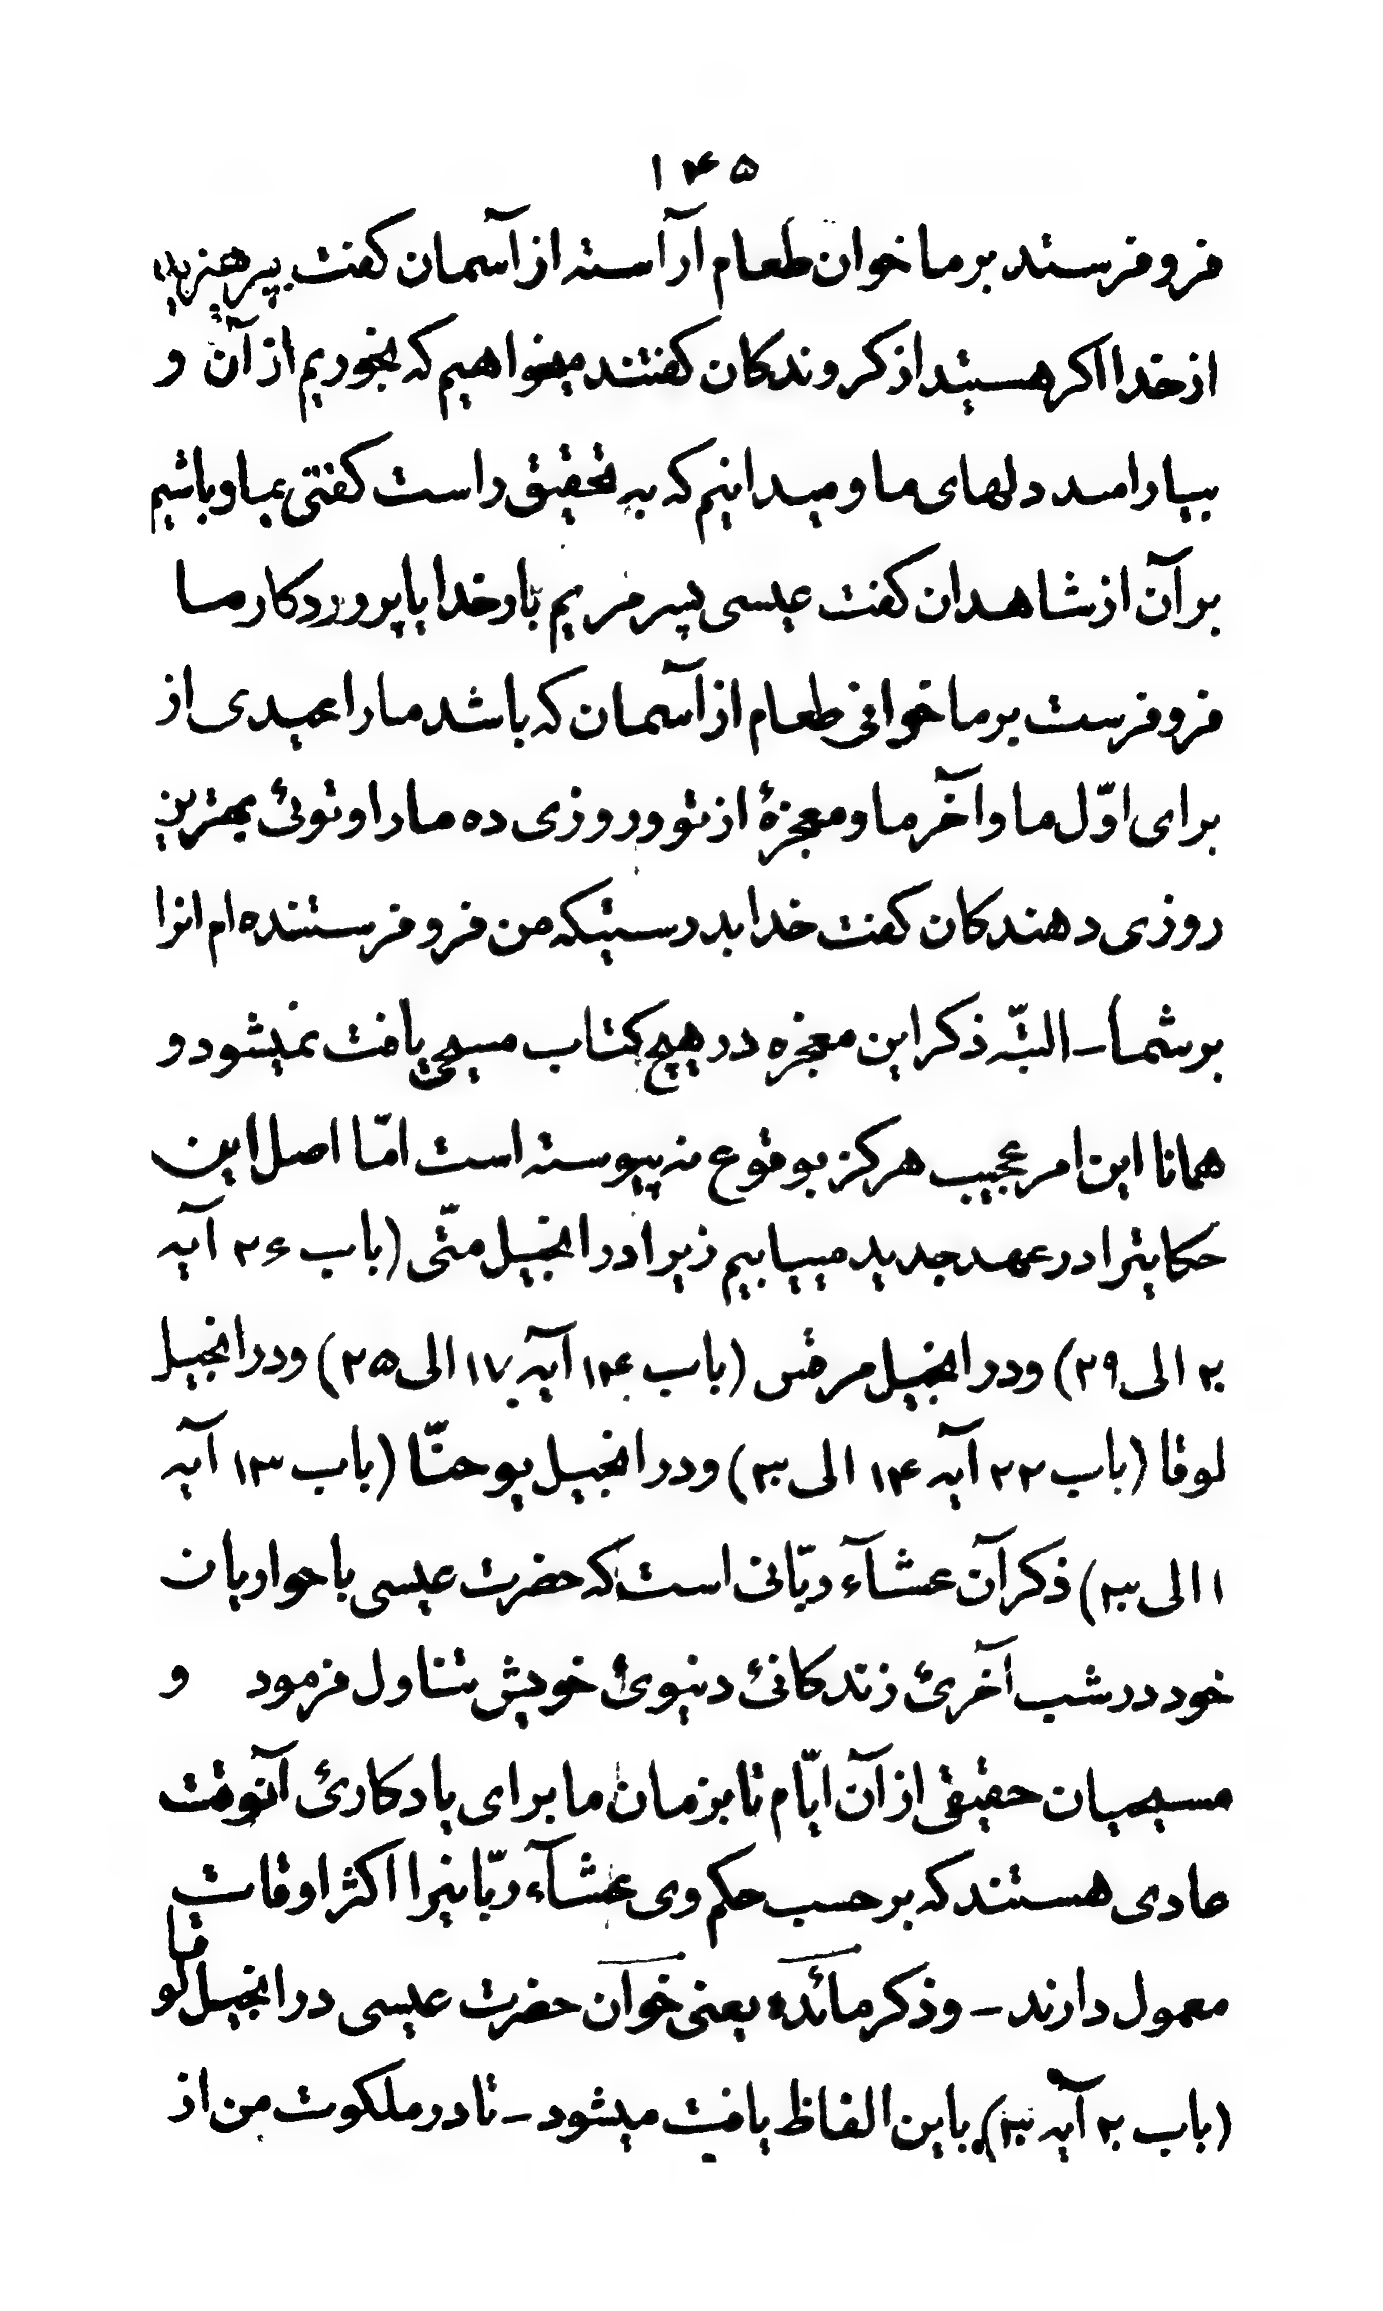 ۱۴۵
فرو فرستد بر ما خوان طعام آراسته از آسمان کفت بپرهیزید
از خدا اکر هستید از کروندکان کفتند میخواهیم که بخوریم از آن و
بیارامد دلهای ما و میدانیم که به تحقیق راست کفتی بما و باشیم
بر آن از شاهدان کفت عیسی پسر مریم بار خدایا پروردکار ما
فرو فرست بر ما خوانی طعام از آسمان که باشد ما را عیدی از
برای اوّل ما و آخر ما و معجزۀ از تو و روزی ده ما را و توئی بهترین
روزی دهندکان کفت خدا بدرستیکه من فرو فرستنده ام انرا
بر شما – البتّه ذکر این معجزه در هیچ کتاب مسیحی یافت نمیشود و
همانا این امر عجیب هرکز بوقوع نه پیوسته است امّا اصل این
حکایترا در عهد جدید مییابیم زیرا در انجیل متّی (باب ۲۶ آیه
۲۰ الی ۲۹) و در انجیل مرقس (باب ۱۴ آیه ۱۷ الی ۲۵) و در انجیل
لوقا (باب ۲۲ آیه ۱۴ الی ۳۰) و در انجیل یوحنّا (باب ۱۳ آیه
۱ الی ۳۰) ذکر آن عشآء ربّانی است که حضرت عیسی با حواریان
خود در شب آخرئ زندکانئ دنیوئ خویش تناول فرمود و
مسیحیان حقیقی از آن ایّام تا بزمان ما برای یادکارئ آنوقت
عادی هستند که بر حسب حکم وی عشآء ربّانیرا اکثر اوقات
معمول دارند – و ذکر مائده یعنی خوان حضرت عیسی در انجیل لوقا
(باب ۲۲ آیه ۳۰) باین الفاظ یافت میشود – تا در ملکوت من از